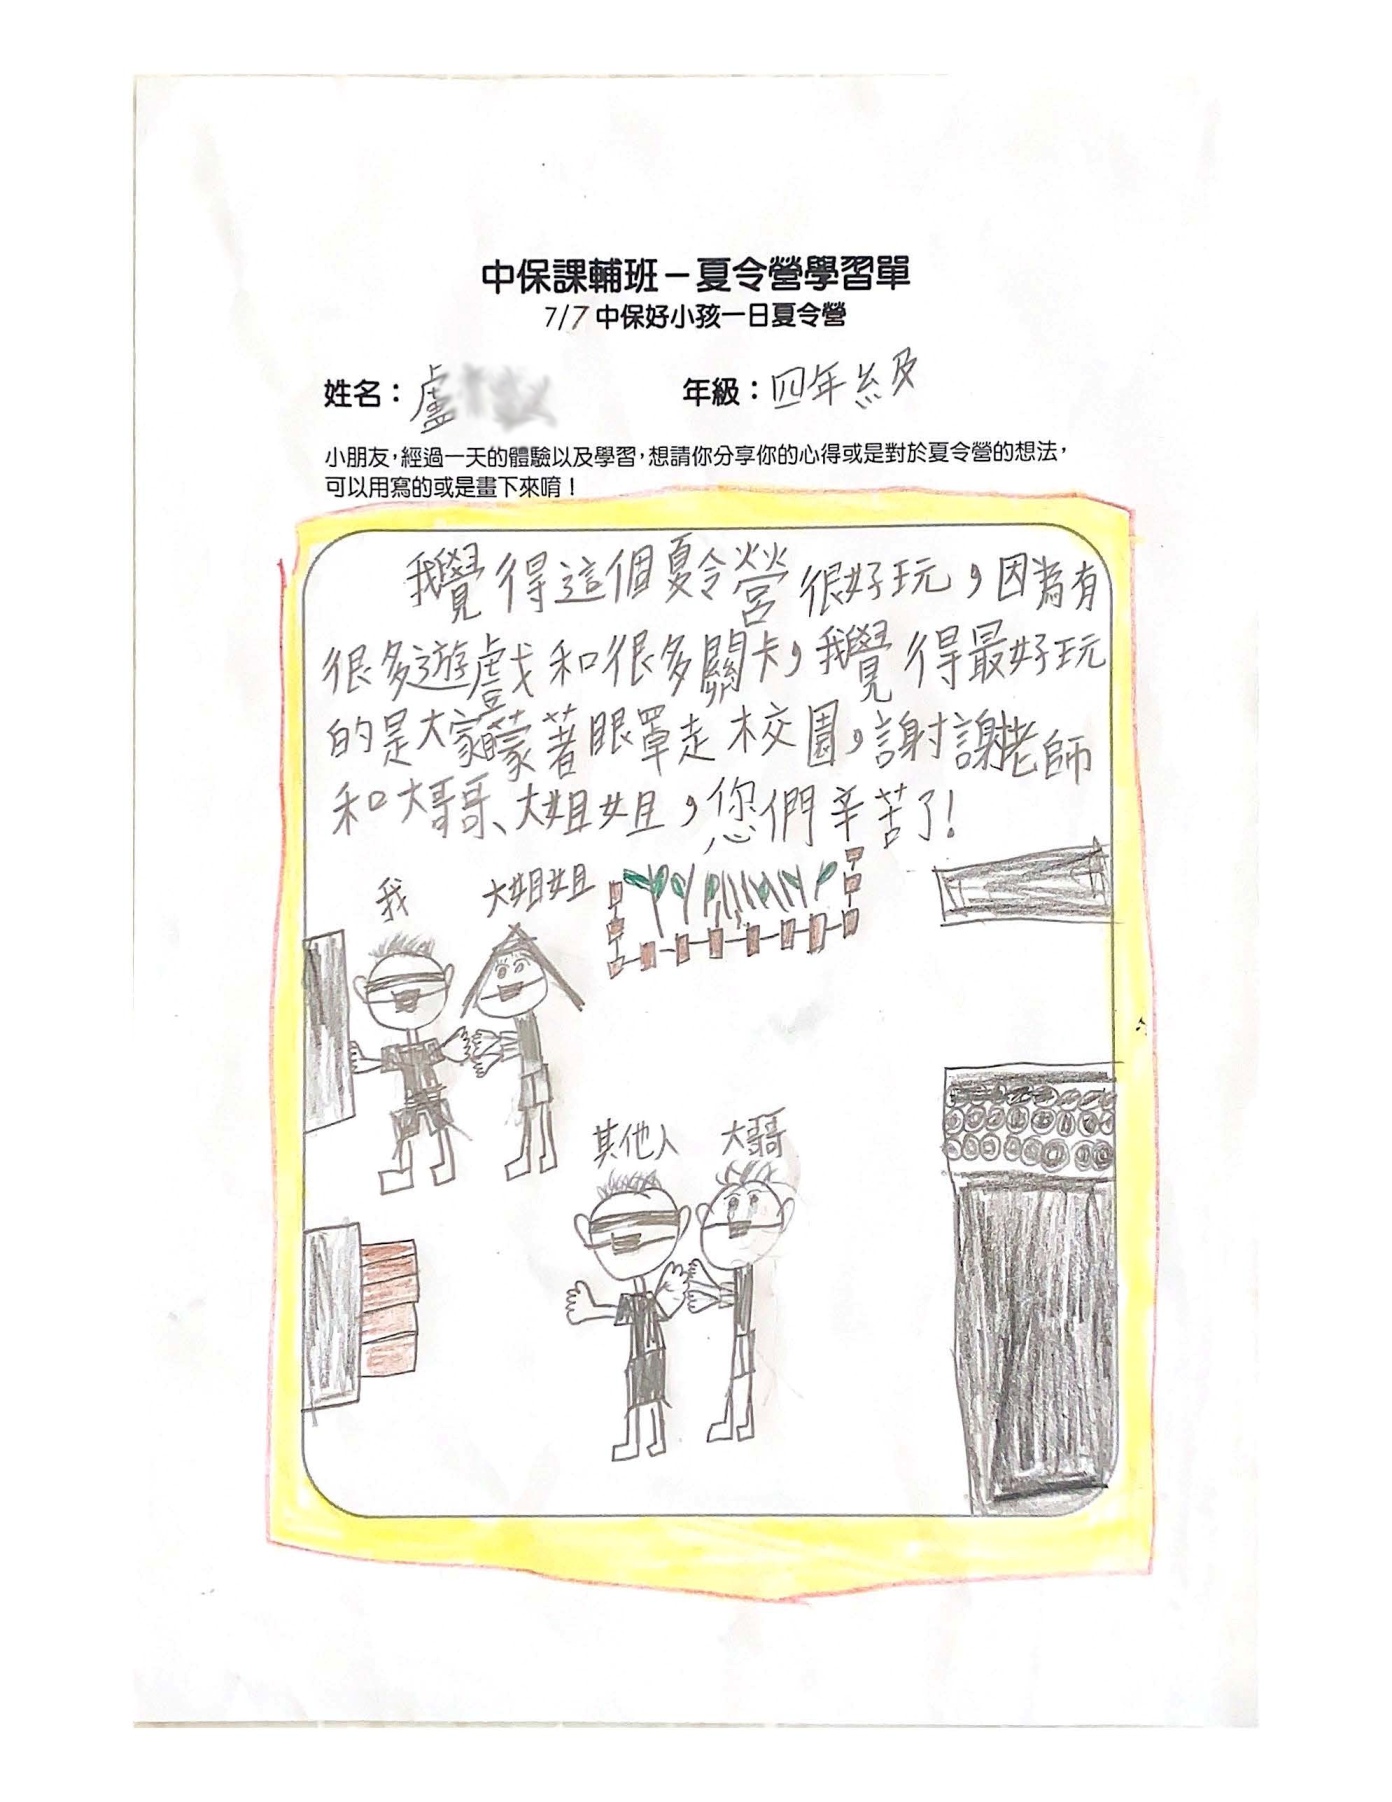 中保課輔班－夏令營學習單
7/7 中保好小孩一日夏令營
姓名：盧
年級：四年級
小朋友，經過一天的體驗以及學習，想請你分享你的心得或是對於夏令營的想法，
可以用寫的或是畫下來唷！
我覺得這個夏令營很好玩，因為有
很多遊戲和很多關卡，我覺得最好玩
的是大家矇著眼罩走校園，謝謝老師
和大哥哥、大姐姐，您們辛苦了！
我
大姐姐
其他人
大哥哥